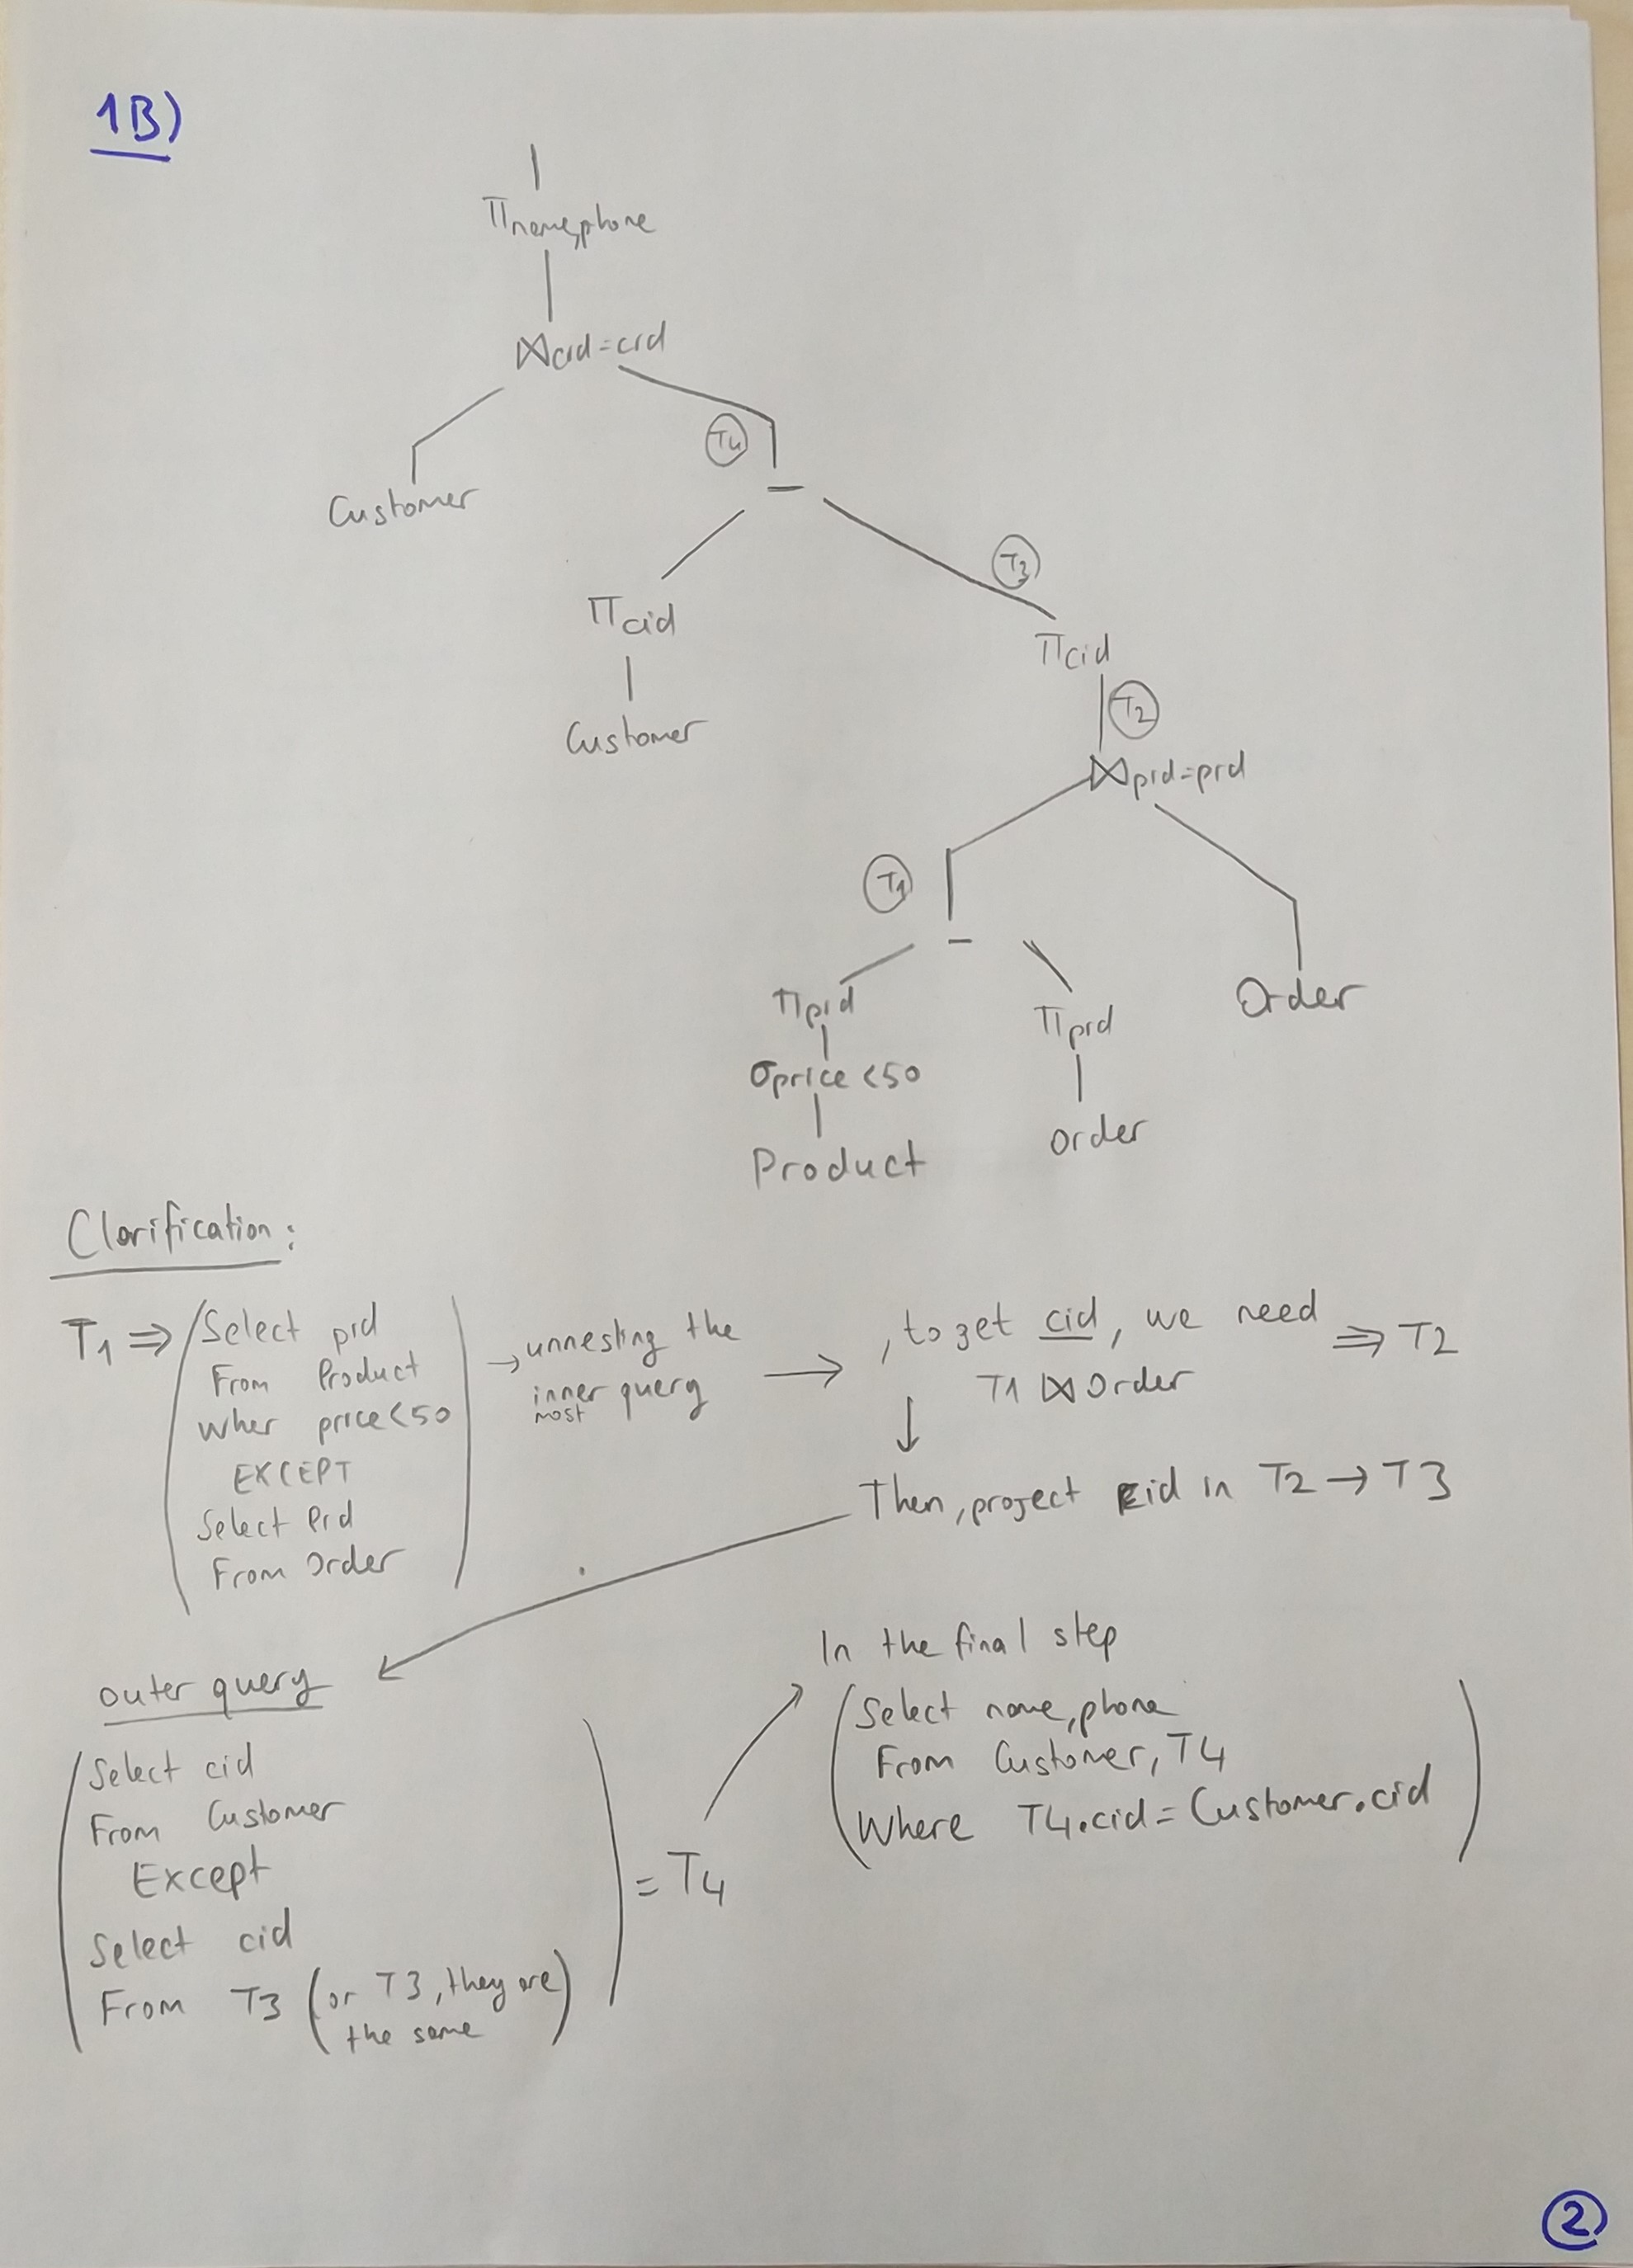 1B)
πname,phone
⋈cid=cid
T4
Customer
−
T3
πcid
πcid
T2
Customer
⋈pid=pid
T1
−
πpid
πpid
Order
σprice<50
order
Product
Clarification:
T1 ⇒ (Select pid
From Product
wher price<50
EXCEPT
Select Pid
From Order)
→ unnesting the
inner query
most
→ , to get cid, we need ⇒ T2
T1 ⋈ Order
↓
Then, project cid in T2 → T3
outer query
(Select cid
From Customer
Except
Select cid
From T3 (or T3, they are
the same) = T4
In the final step
(Select name, phone
From Customer, T4
Where T4.cid = Customer.cid)
2